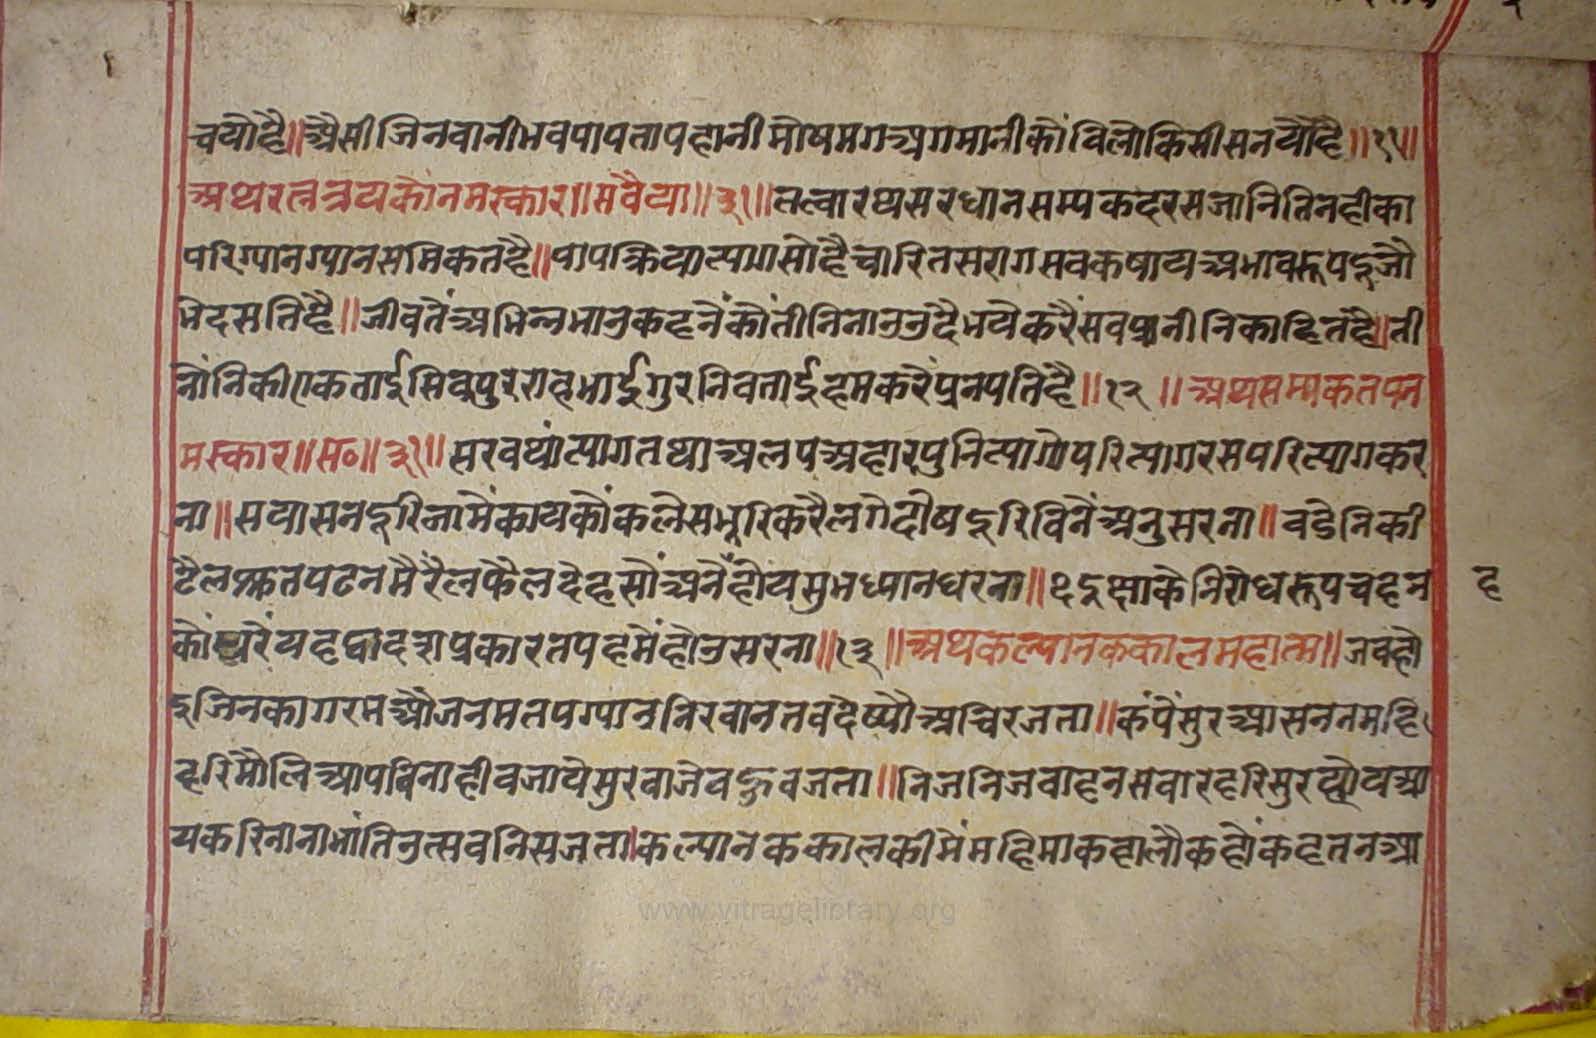 चयौहै॥अैसीजिनवानीभवपापतापहानीमोषमगअगमानीकौंविलोकिसीसनयौंहै॥११॥
अथरत्नत्रयकौंनमस्कार॥सवैया॥३१॥तत्वारथसरधानसम्यकदरसजानितिनहीका
परिग्यानग्यानसमिकतहै॥पापक्रियात्यागसोहैचारितसरागसवकषायअभावरूपदूजौ
भेदसतिहै॥जीवतैंअभिन्नभानुकहनैंकौंतीनिनानुनुदैभयेकरैंसवप्रानीनिकाहितहै॥ती
नौंनिकीएकताईसिवपुरराहभाईगुरनिवताईहमकरैंप्रनपतिहै॥१२॥अथसम्यकतपन
मस्कार॥स०॥३१॥सरवथांत्यागतथाअलपअहारपुनित्यागोपरित्यागरसपरित्यागकर
ना॥सयासनदूरिनामैंकायकौंकलेसभूरिकरैलगेदोषदूरिविनैंअनुसरना॥वडेनिकी
टैलश्रुतपढनमैंरैलफैलदेहसौंअनैंहोयसुभध्यानधरना॥इदुक्षाकैनिरोधरूपचहन
ह
कौंधरैंयहद्वादशप्रकारतपहमेंहोउसरना॥१३॥अथकल्यानककालमहात्म॥जवहो
इजिनकागरमऔजनमतपग्यानुनिरवानतवदेष्यौअचिरजता॥कंपैंसुरआसननतमहि
हरिमौलिआपविनाहीवजायेसुरवाजेवहुवजता॥निजनिजवाहनसवारहरिसुरल्यौयआ
यकरिनानाभांतिउत्सवनिसजता।कल्यानककालकीमैंमहिमाकहालौकहौंकहतनआ